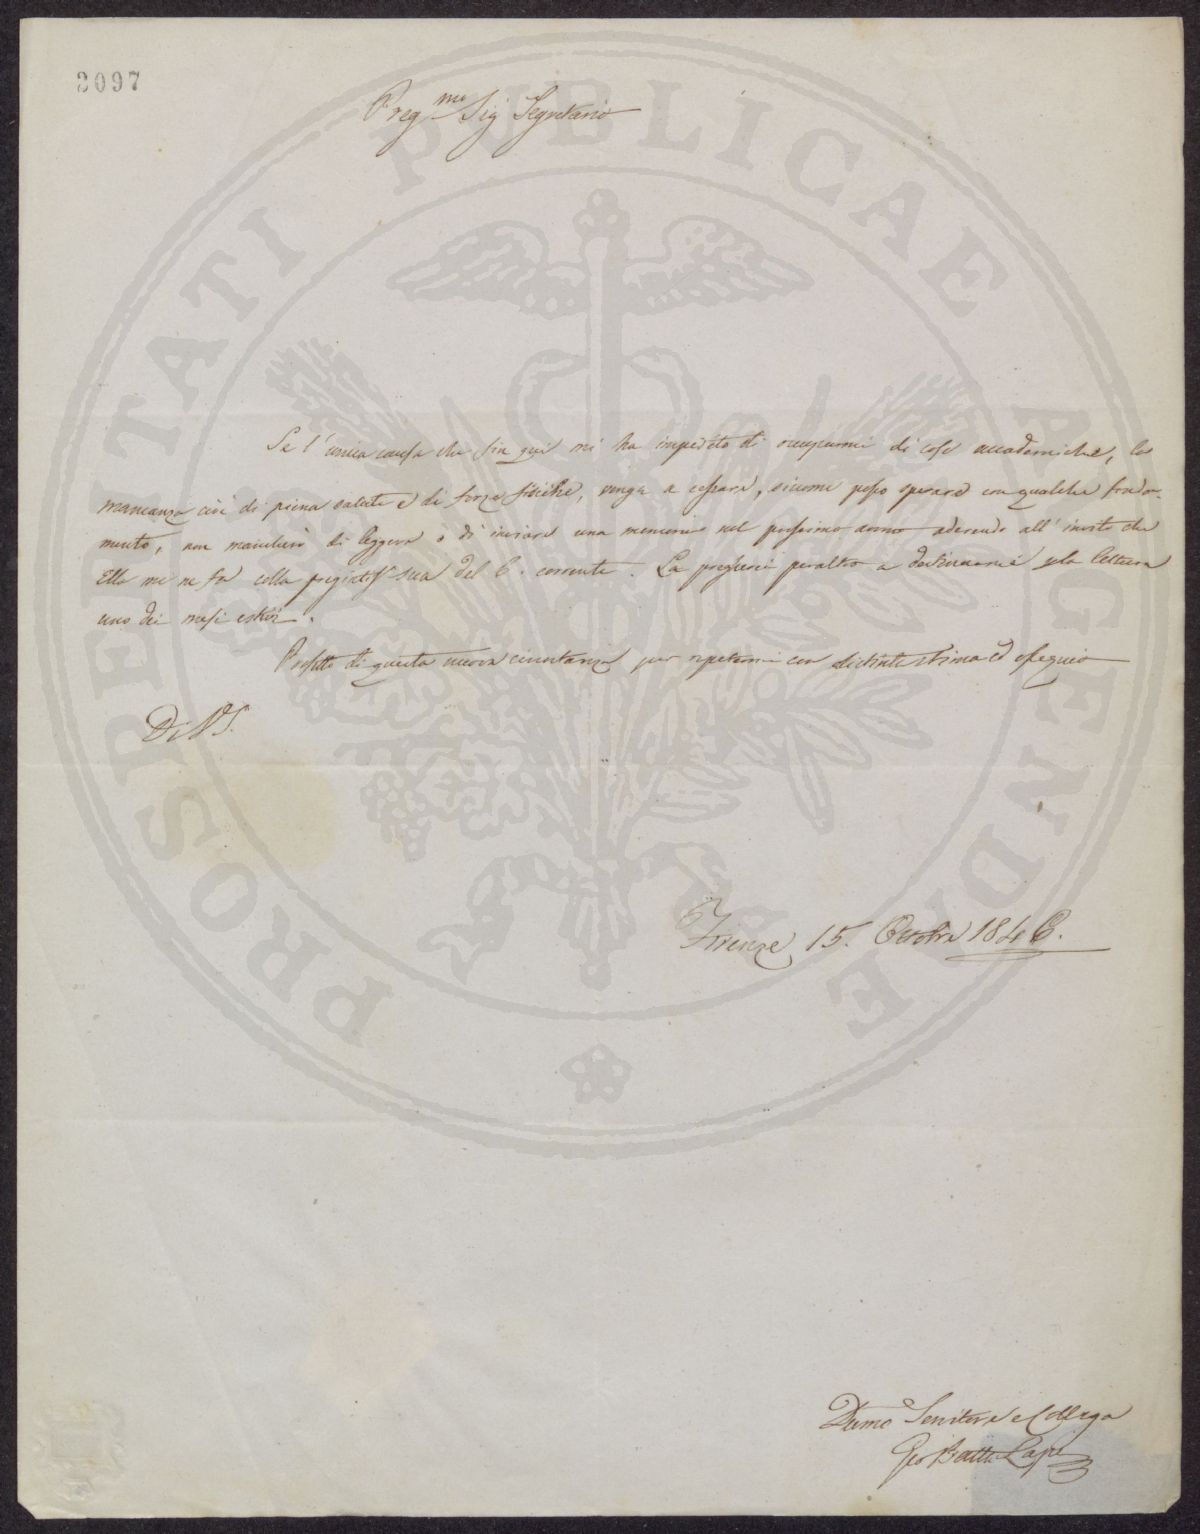 2097
Preg.mo Sig Segretario
Se l'unica causa che fin qui mi ha impedito di occuparmi di cose accademiche, la
mancanza cioè di piena salute e di forze fisiche, venga a cessare, siccome posso sperare con qualche fonda-
mento, non mancherò di leggere o di inviare una memoria nel prossimo anno aderendo all'invito che
Ella me ne fa colla pregiatiss. sua del 6. corrente. La pregherei peraltro a destinarmi p la lettura
uno dei mesi estivi.
Profitto di questa nuova circostanza per ripetermi con distinta stima ed ossequio
Di VS.
Firenze 15. Ottobre 1846.
Dvmo Servitore e Collega
Gio Batta Lapi
PROSPERITATI PUBLICAE AUGENDAE